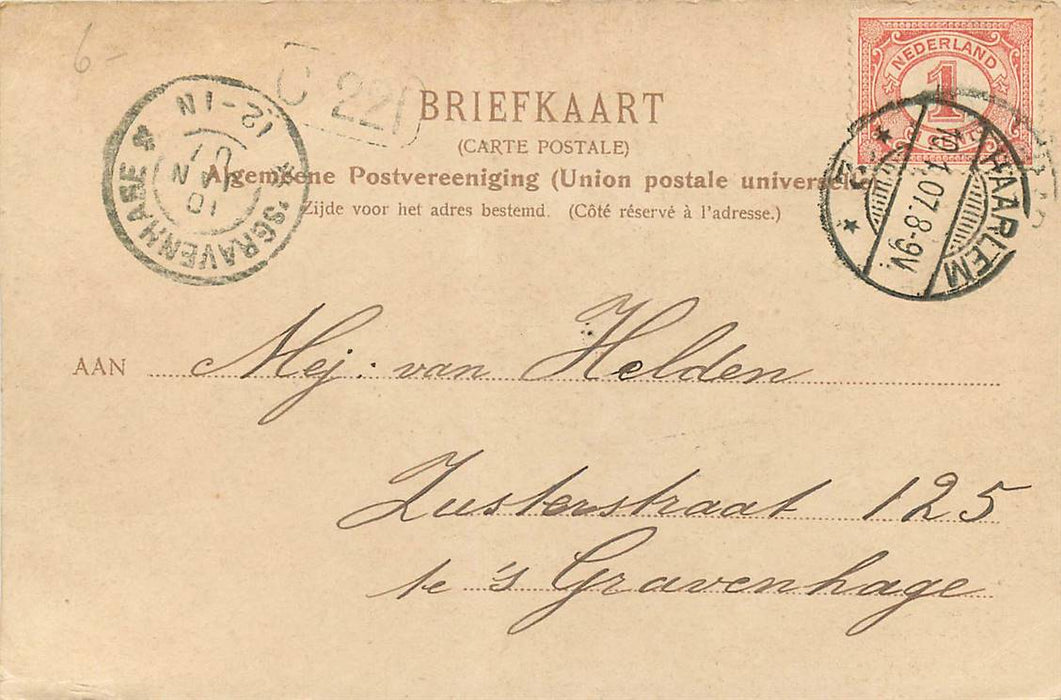 6-
NEDERLAND
1
C 22
BRIEFKAART
(CARTE POSTALE)
Algemeene Postvereeniging (Union postale universelle)
Zijde voor het adres bestemd. (Côté réservé à l'adresse.)
'SGRAVENHAGE
12-1N
10 JAN 07
HAARLEM
10.1.07.8-9V
AAN Mej: van Helden
Zusterstraat 125
te 's Gravenhage